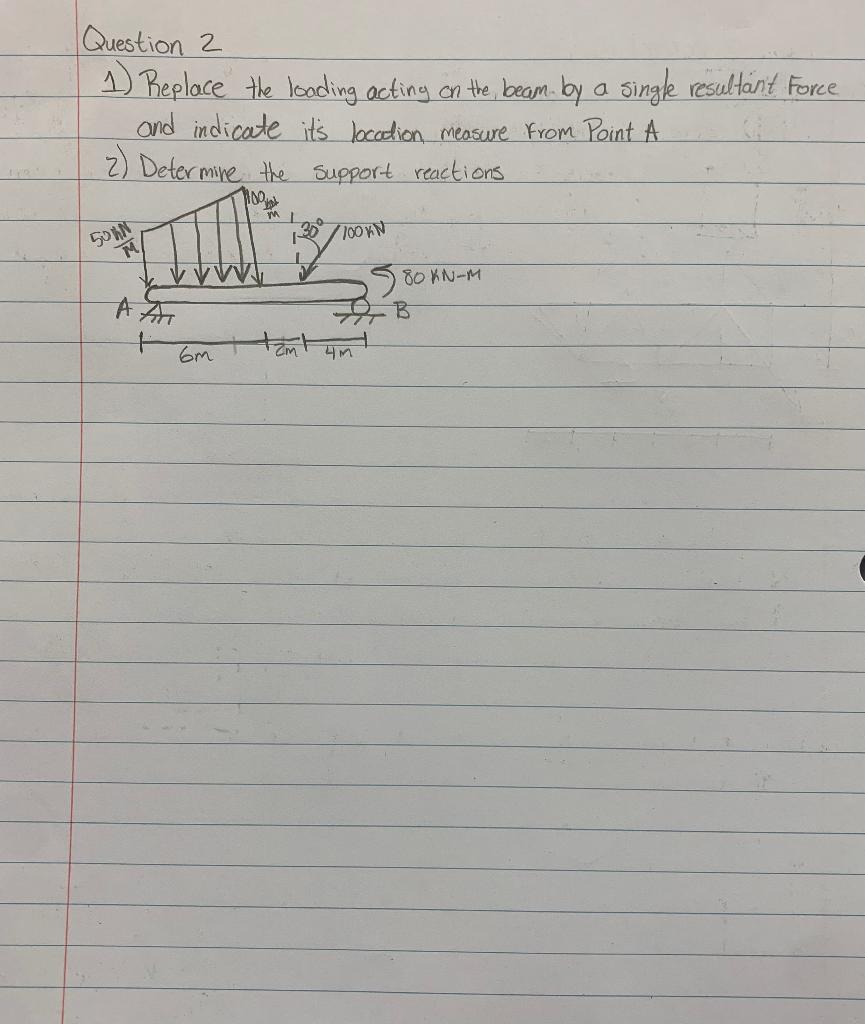 Question 2
1) Replace the loading acting on the beam by a single resultant Force
and indicate it's location measure from Point A
2) Determine the support reactions
50 KN/M
100 /m
30°
100 KN
80 KN-M
A
B
6m
2m
4m